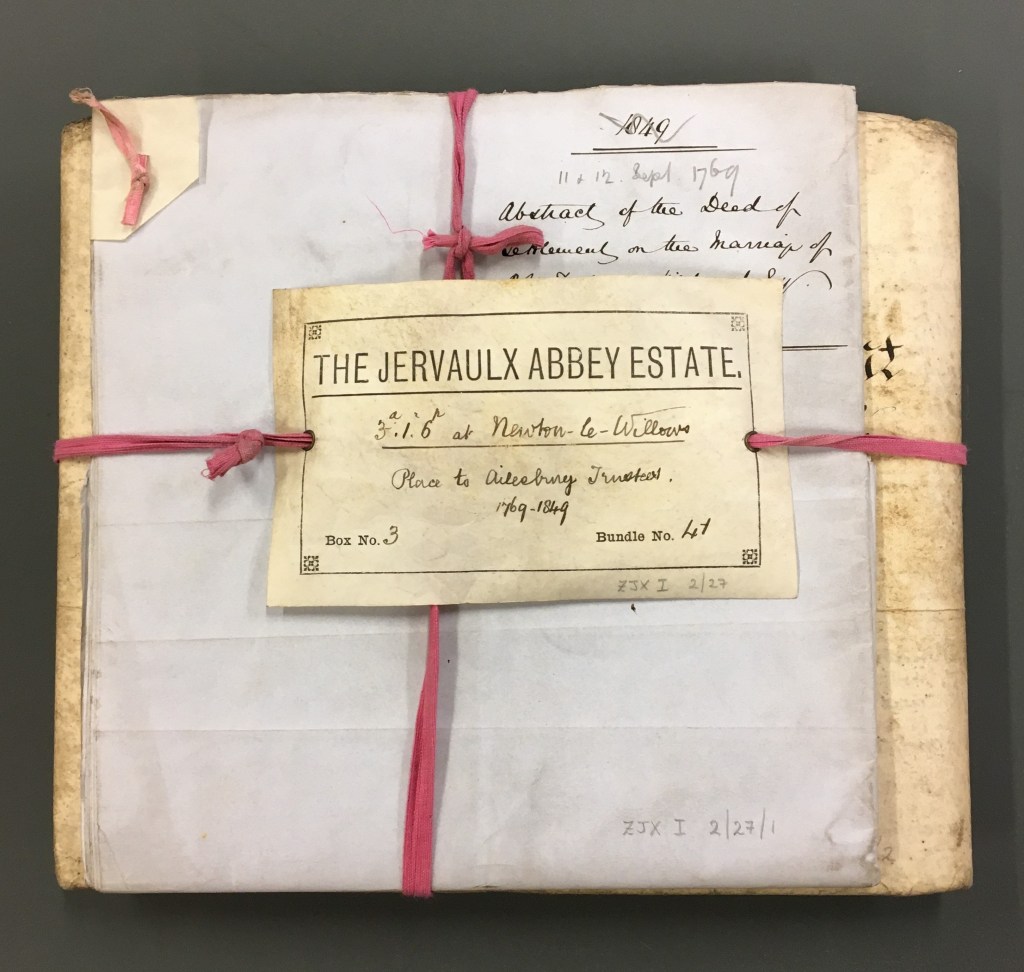 1849
11 & 12. Sept. 1769
Abstract of the Deed of
settlement on the Marriage of
THE JERVAULX ABBEY ESTATE.
3.ᵃ 1.ʳ 6ᵖ at Newton-le-Willows
Place to Ailesbury Trustees.
1769-1849
Box No. 3
Bundle No. 41
ZJX I 2/27
ZJX I 2/27/1